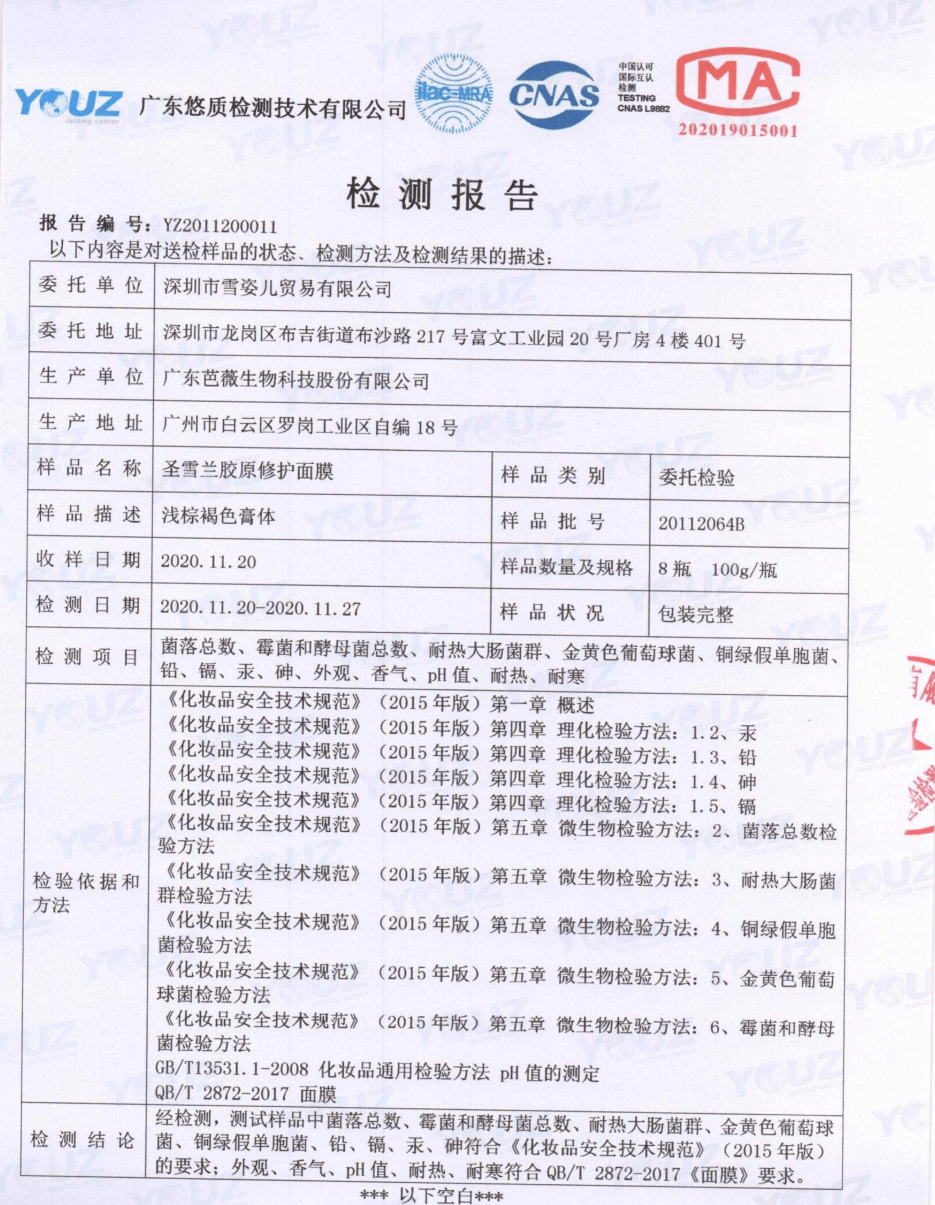 YOUZ
testing center
广东悠质检测技术有限公司
ilac-MRA
CNAS
中国认可
国际互认
检测
TESTING
CNAS L9882
MA
202019015001
检测报告
报告编号：YZ2011200011
以下内容是对送检样品的状态、检测方法及检测结果的描述：
委托单位 深圳市雪姿儿贸易有限公司
委托地址 深圳市龙岗区布吉街道布沙路217号富文工业园20号厂房4楼401号
生产单位 广东芭薇生物科技股份有限公司
生产地址 广州市白云区罗岗工业区自编18号
样品名称 圣雪兰胶原修护面膜 样品类别 委托检验
样品描述 浅棕褐色膏体 样品批号 20112064B
收样日期 2020.11.20 样品数量及规格 8瓶 100g/瓶
检测日期 2020.11.20-2020.11.27 样品状况 包装完整
检测项目 菌落总数、霉菌和酵母菌总数、耐热大肠菌群、金黄色葡萄球菌、铜绿假单胞菌、
铅、镉、汞、砷、外观、香气、pH值、耐热、耐寒
检验依据和
方法
《化妆品安全技术规范》（2015年版）第一章 概述
《化妆品安全技术规范》（2015年版）第四章 理化检验方法：1.2、汞
《化妆品安全技术规范》（2015年版）第四章 理化检验方法：1.3、铅
《化妆品安全技术规范》（2015年版）第四章 理化检验方法：1.4、砷
《化妆品安全技术规范》（2015年版）第四章 理化检验方法：1.5、镉
《化妆品安全技术规范》（2015年版）第五章 微生物检验方法：2、菌落总数检
验方法
《化妆品安全技术规范》（2015年版）第五章 微生物检验方法：3、耐热大肠菌
群检验方法
《化妆品安全技术规范》（2015年版）第五章 微生物检验方法：4、铜绿假单胞
菌检验方法
《化妆品安全技术规范》（2015年版）第五章 微生物检验方法：5、金黄色葡萄
球菌检验方法
《化妆品安全技术规范》（2015年版）第五章 微生物检验方法：6、霉菌和酵母
菌检验方法
GB/T13531.1-2008 化妆品通用检验方法 pH值的测定
QB/T 2872-2017 面膜
检测结论 经检测，测试样品中菌落总数、霉菌和酵母菌总数、耐热大肠菌群、金黄色葡萄球
菌、铜绿假单胞菌、铅、镉、汞、砷符合《化妆品安全技术规范》（2015年版）
的要求；外观、香气、pH值、耐热、耐寒符合QB/T 2872-2017《面膜》要求。
*** 以下空白***